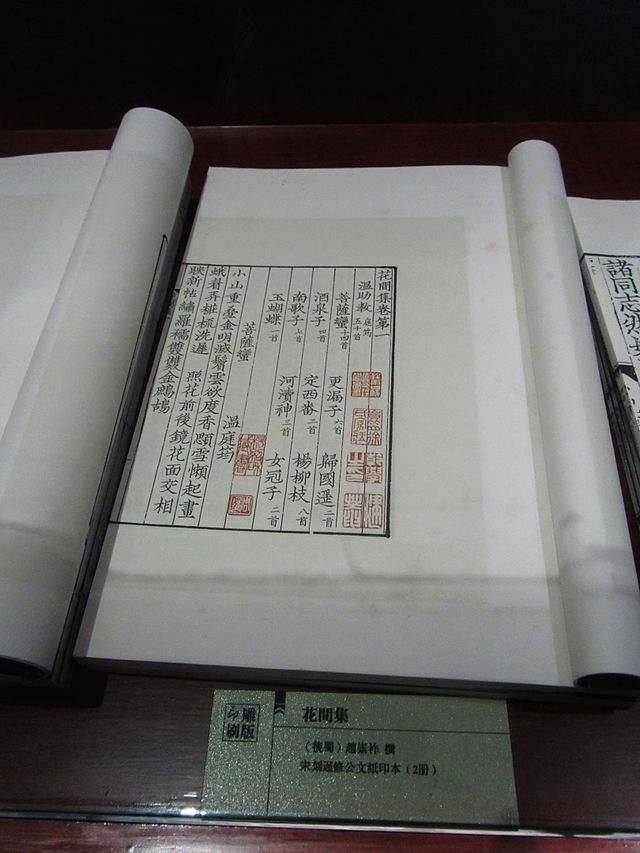 花間集卷第一
溫助教 庭筠 五十首
菩薩蠻十四首 更漏子六首 歸國遥二首
酒泉子四首 定西番三首 楊柳枝八首
南歌子七首 河瀆神三首 女冠子二首
玉蝴蝶一首
菩薩蠻 溫庭筠
小山重疊金明滅鬢雲欲度香顋雪懶起畫
蛾眉弄粧梳洗遲 照花前後鏡花面交相
映新帖繡羅襦雙雙金鷓鴣
諸同志
雕版
印刷
花間集
（後蜀）趙崇祚 撰
宋刻遞修公文紙印本（2册）